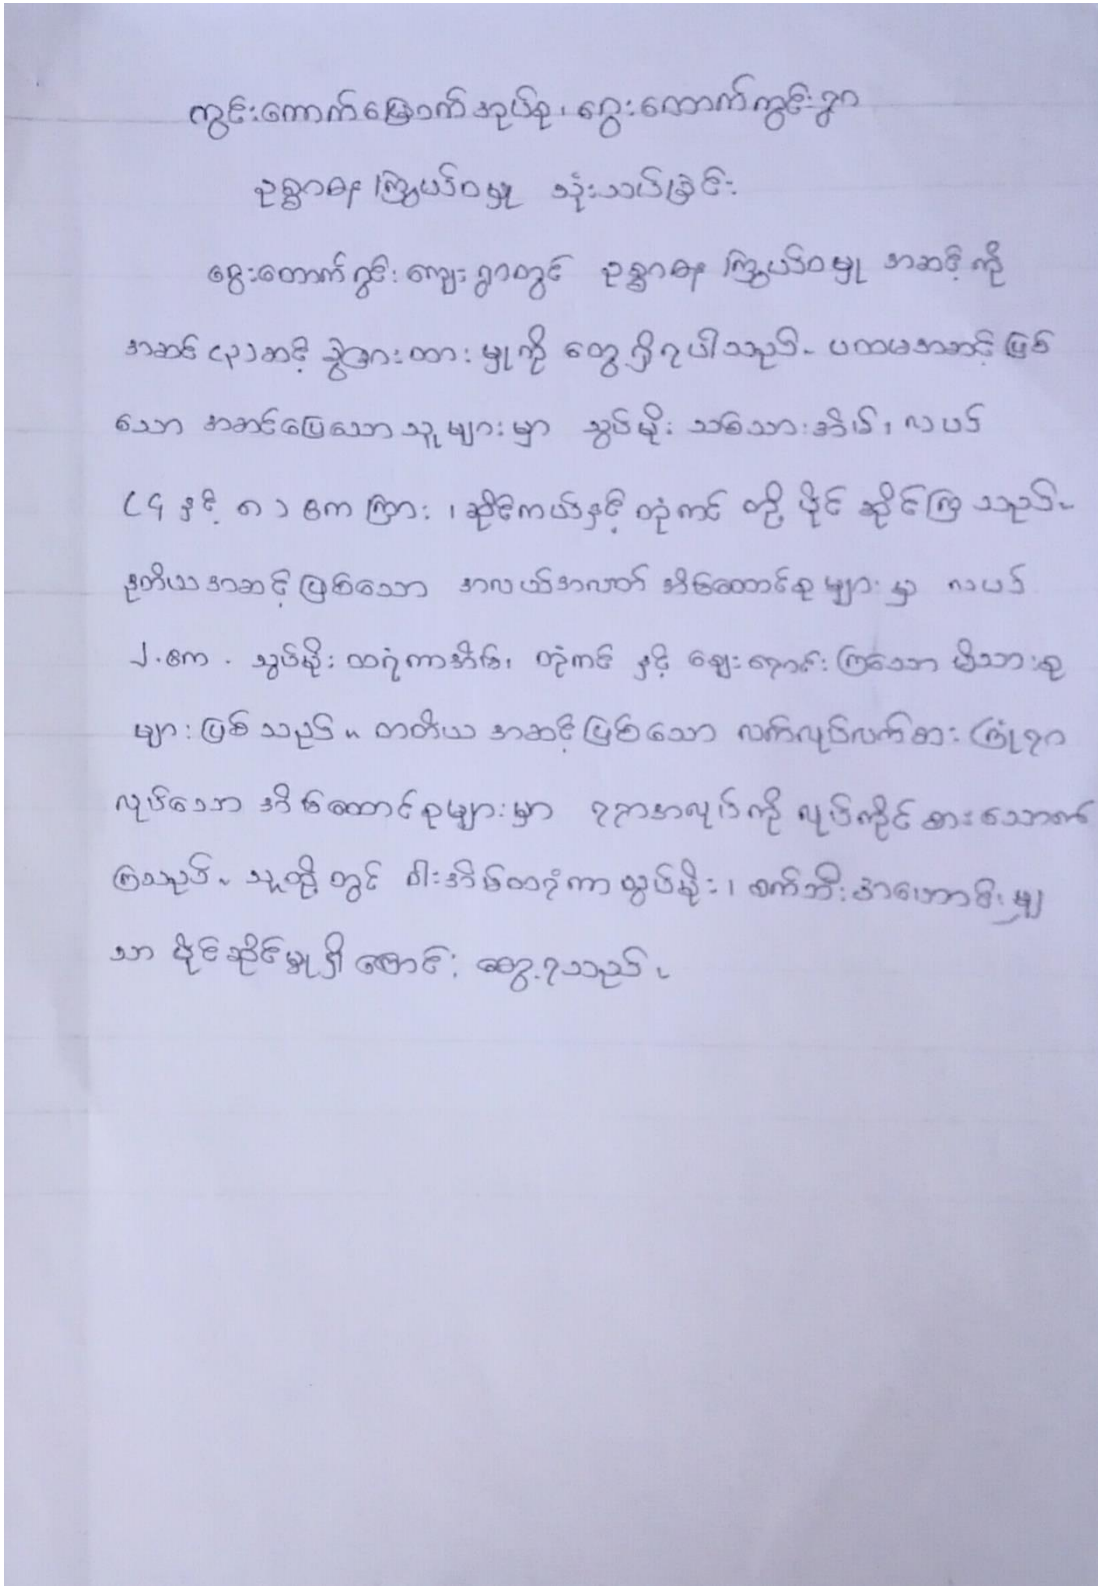 ကွင်းကောက်မြောက်အုပ်စု၊ ငွေးတောက်ကွင်းရွာ
ဥစ္စာဓန ကြွယ်ဝမှု သုံးသပ်ခြင်း
ငွေးတောက်ကွင်း ကျေးရွာတွင် ဥစ္စာဓန ကြွယ်ဝမှု အဆင့်ကို
အဆင့် (၃) ဆင့် ခွဲခြားထားမှုကို တွေ့ရှိရပါသည်။ ပထမအဆင့်ဖြစ်
သော အဆင်ပြေသောသူများမှာ သွပ်မိုး သစ်သားအိမ်၊ လယ်
(၄ နှင့် ၈) ဧကကြား၊ ဆိုင်ကယ်နှင့် တုံကင် တို့ ပိုင်ဆိုင်ကြသည်။
ဒုတိယအဆင့်ဖြစ်သော အလယ်အလတ် အိမ်ထောင်စုများမှာ လယ်
၂ ဧက၊ သွပ်မိုး ထရံကာအိမ်၊ တုံကင် နှင့် ဈေးရောင်းကြသော မိသားစု
များ ဖြစ်သည်။ တတိယ အဆင့်ဖြစ်သော လက်လုပ်လက်စား ကြုံရာ
လုပ်သော အိမ်ထောင်စုများမှာ ရရာအလုပ်ကို လုပ်ကိုင်စားသောက်
ကြသည်။ သူတို့တွင် ဝါးအိမ်ထရံကာ သွပ်မိုး၊ စက်ဘီးအဟောင်းမျှ
သာ ပိုင်ဆိုင်မှုရှိကြောင်း တွေ့ရသည်။